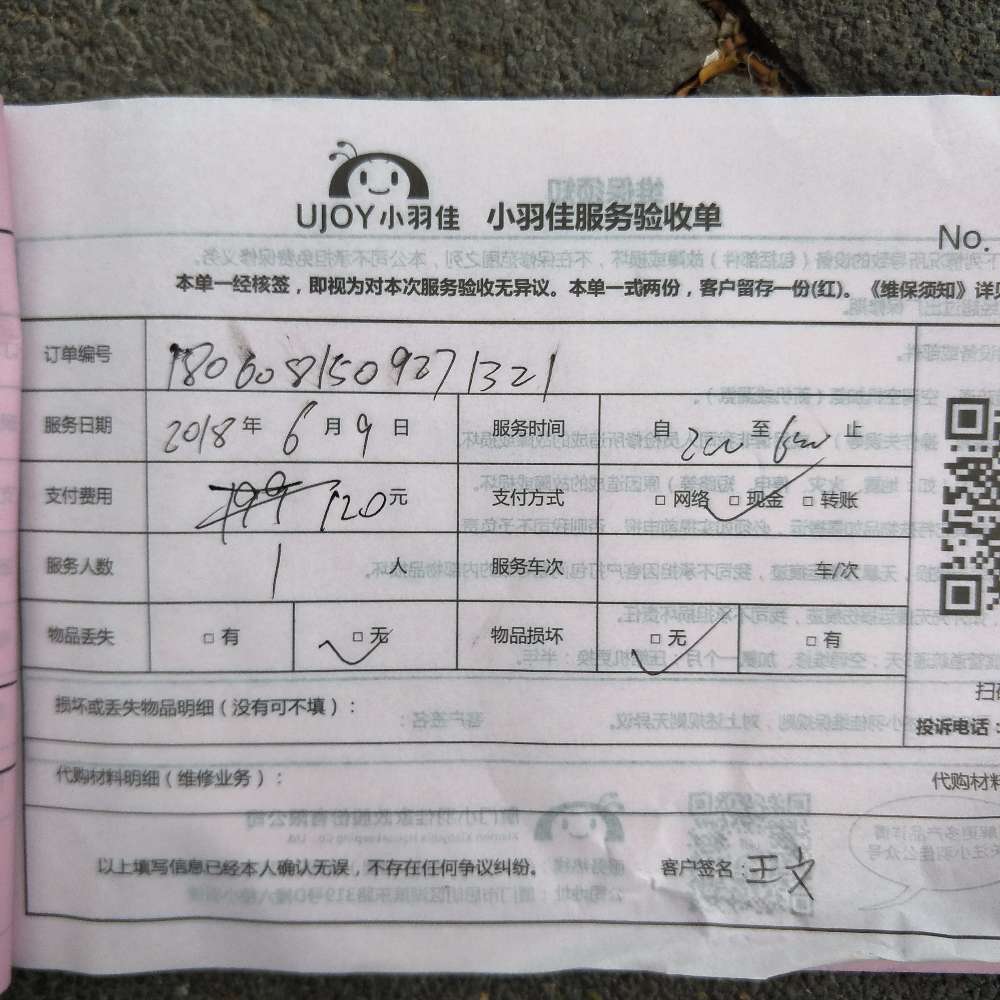 UJOY小羽佳 小羽佳服务验收单
No.
本单一经核签，即视为对本次服务验收无异议。本单一式两份，客户留存一份(红)。《维保须知》详见
订单编号 1806081509271321
服务日期 2018 年 6 月 9 日 服务时间 自 200 至 600 止
支付费用 199 120元 支付方式 □ 网络 □ 现金 □ 转账
服务人数 1 人 服务车次 车/次
物品丢失 □ 有 □ 无 物品损坏 □ 无 □ 有
扫
损坏或丢失物品明细（没有可不填）：
投诉电话：
代购材料明细（维修业务）： 代购材料
以上填写信息已经本人确认无误，不存在任何争议纠纷。 客户签名：王文